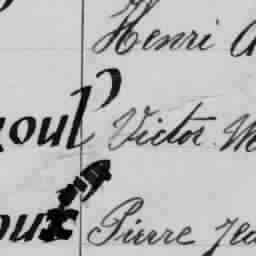 Henri
oul Victor
oux Pierre Jea